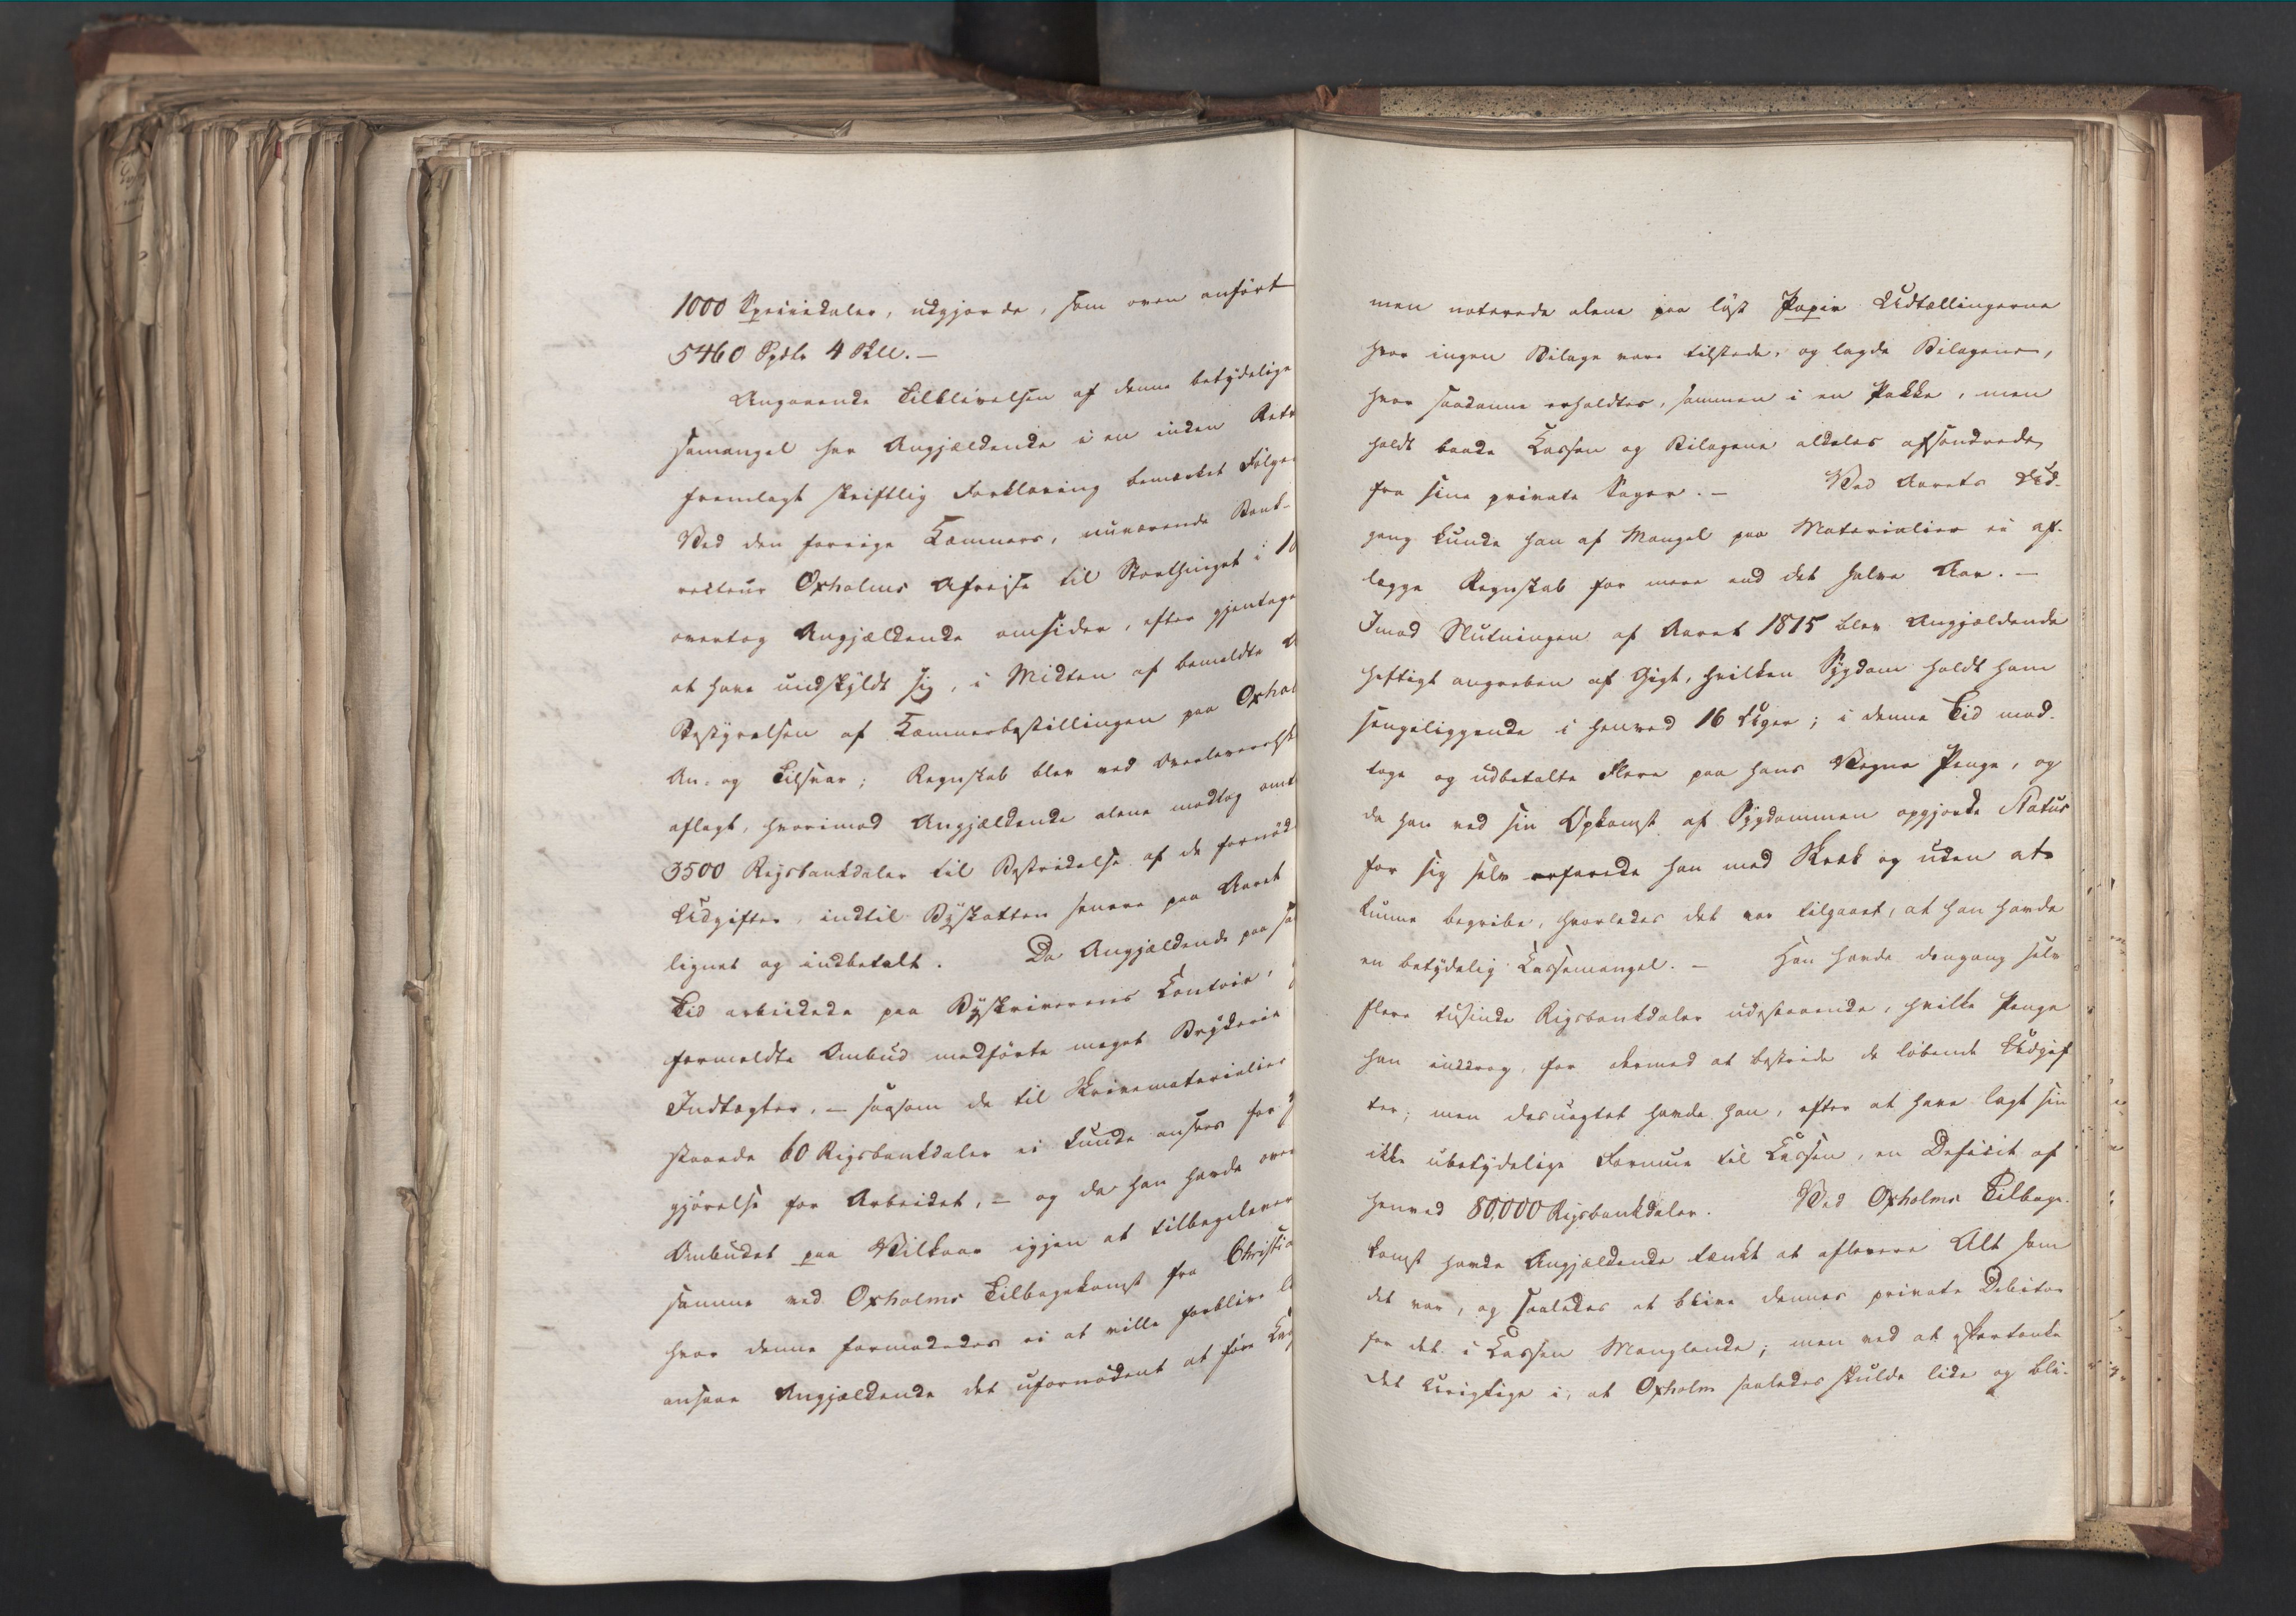 1000 Speciedaler, udgjorde, som oven anført
5460 Spdlr 4 Skll. –
Angaaende Tilblivelsen af denne betydelige
semangel har Angjældende i en inden Rett
fremlagt skriftlig Forklaring bemærket Følgen
Ved den forrige Kæmners, nuværende Bank-
recteur Oxholms Afreise til Storthinget i 1
overtog Angjældende omsider, efter gjentage
at have undskyldt sig, i Midten af bemeldte A
Bestyrelsen af Kæmnerbestillingen paa Oxhol
An- og Tilsvar; Regnskab blev ved Overleverelse
aflagt, hvorimod Angjældende alene modtog omt
3500 Rigsbankdaler til Bestridelse af de fornød
Udgifter, indtil Byskatten senere paa Aaret
lignet og indbetalt. Da Angjældende paa sa
Tid arbeidede paa Byskriverens Contoir,
formeldte Ombud medførte meget Bryderie
Indtægter, – saasom de til Skrivematerialier
staaede 60 Rigsbankdaler ei kunde ansees for G
gjørelse for Arbeidet, – og da han havde over
Ombudet paa Vilkaar igjen at tilbagelever
samme ved Oxholms Tilbagekomst fra Christia
hvor denne formodedes ei at ville forblive l
ansaae Angjældende det ufornødent at føre Cas
men noterede alene paa løst Papir Udtællingerne
hvor ingen Bilage vare tilstede, og lagde Bilagene,
hvor saadanne erholdtes, sammen i en Pakke, men
holdt baade Cassen og Bilagene aldeles afsondrede
fra sine private Sager. – Ved Aarets Ud-
gang kunde han af Mangel paa Materialier ei af-
lægge Regnskab for mere end det halve Aar. –
Imod Slutningen af Aaret 1815 blev Angjældende
heftigt angreben af Gigt, hvilken Sygdom holdt ham
sengeliggende i henved 16 Uger; i denne Tid mod-
toge og udbetalte Flere paa hans Vegne Penge, og
da han ved sin Opkomst af Sygdommen opgjorde Status
for sig selv erfarede han med Skræk og uden at
kunne begribe, hvorledes det var tilgaaet, at han havde
en betydelig Cassemangel. – Han havde dengang selv
flere tusinde Rigsbankdaler udestaaende, hvilke Penge
han inddrog, for dermed at bestride de løbende Udgif
ter; men desuagtet havde han, efter at have lagt sin
ikke ubetydelige Formue til Cassen, en Deficit af
henved 80,000 Rigsbankdaler. Ved Oxholms Tilbage-
komst havde Angjældende tænkt at aflevere Alt som
det var, og saaledes at blive dennes private Debitor
for det i Cassen Manglende; men ved at eftertænke
det Urigtige i, at Oxholm saaledes skulde lide og bli-